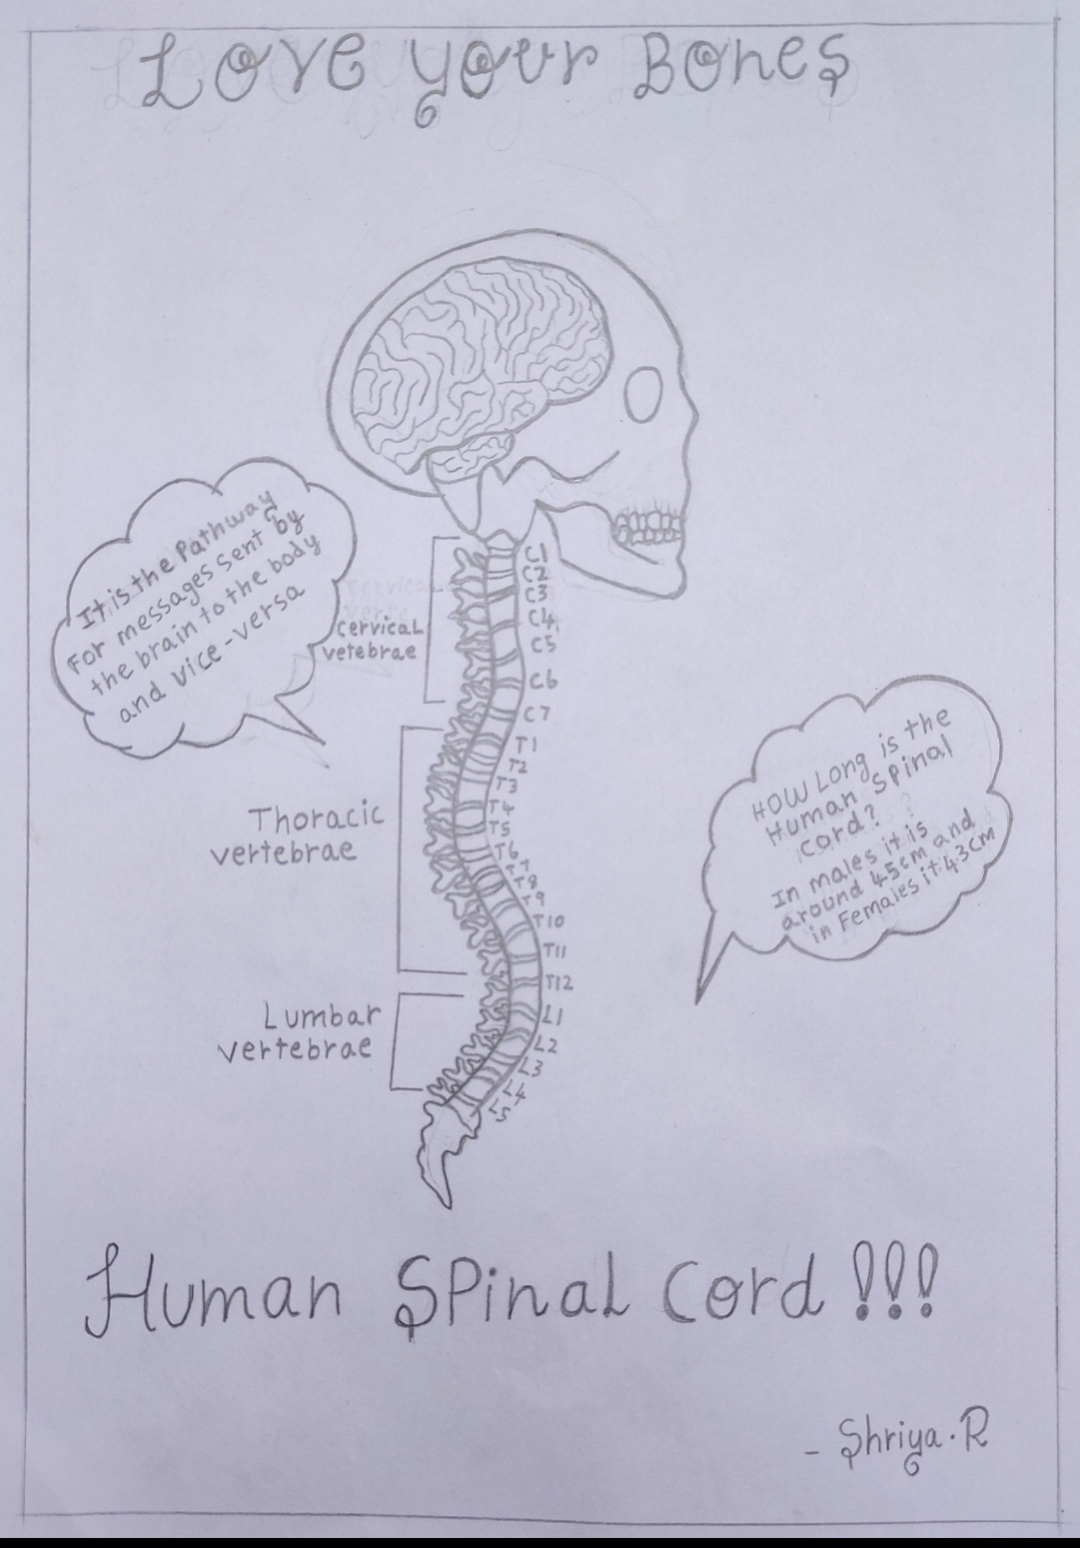 Love your Bones
It is the Pathway
For messages sent by
the brain to the body
and vice-versa
cervical
vetebrae
C1
C2
C3
C4
C5
C6
C7
T1
T2
T3
T4
T5
T6
T7
T8
T9
T10
T11
T12
L1
L2
L3
L4
L5
Thoracic
vertebrae
Lumbar
vertebrae
HOW Long is the
Human Spinal
cord?
In males it is
around 45cm and
in Females it 43cm
Human SPinal Cord !!!
- Shriya.R